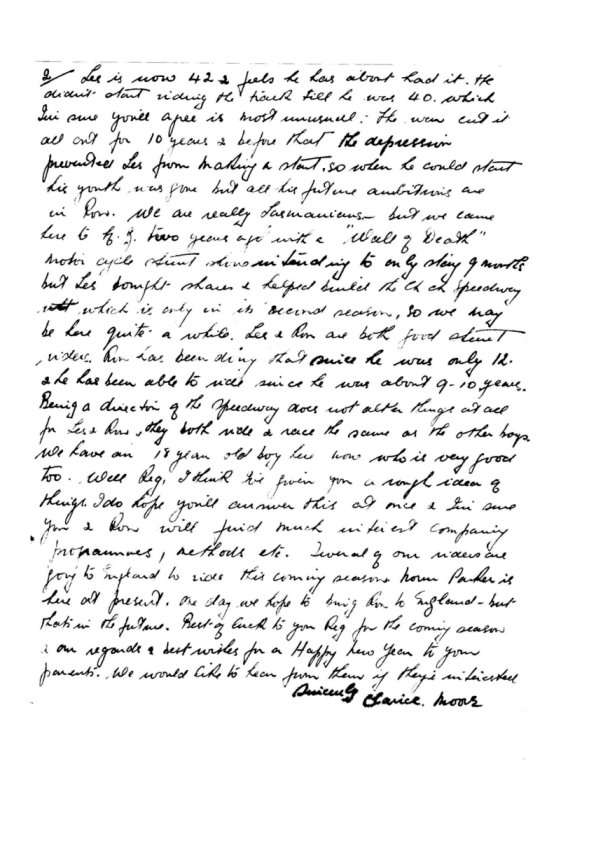 2/ Les is now 42 & feels he has about had it. He
didn't start riding the track till he was 40. which
I'm sure you'll agree is most unusual: The war cut it
all out for 10 years & before that the depression
prevented Les from making a start, so when he could start
his youth was gone but all his future ambitions are
in Ron. We are really Tasmanians - but we came
here to N.Z. two years ago with a "Wall of Death"
motor cycle stunt show intending to only stay 9 months
but Les bought shares & helped build the Ch ch Speedway
which is only in its second season, so we may
be here quite a while. Les & Ron are both good stunt
riders. Ron has been doing that since he was only 12.
& he has been able to ride since he was about 9-10 years.
Being a director of the Speedway does not alter things at all
for Les & Ron, they both ride & race the same as the other boys.
We have an 18 year old boy here now who is very good
too. Well Reg, I think I've given you a rough idea of
things. I do hope you'll answer this at once & I'm sure
you & Ron will find much interest comparing
programmes, methods etc. Several of our riders are
going to England to ride this coming season Norm Parker is
here at present. One day we hope to bring Ron to England - but
that's in the future. Best of luck to you Reg for the coming season
& our regards & best wishes for a Happy New Year to your
parents. We would like to hear from them if they're interested
Sincerely Clarice. Moore